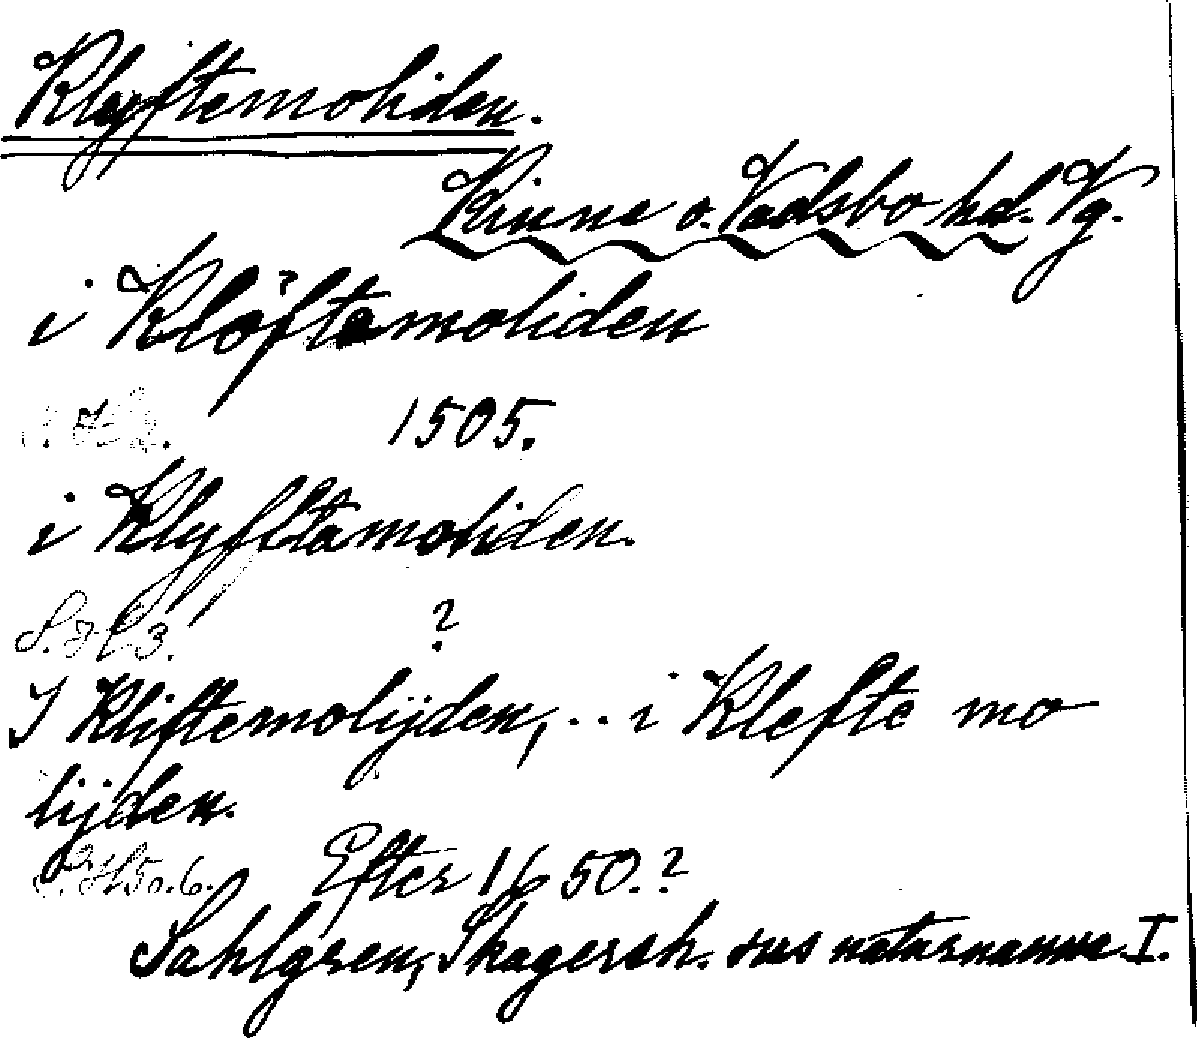 Klyftemoliden.
Kinne o. Vadsbo hd. Vg.
i Klöftemoliden
1505.
i Klyfftamoliden.
S. H. 3. ?
I Kliftemolijden, .. i Klefte mo
lijden.
S. H 5 o. 6. Efter 1650.?
Sahlgren, Skagersh. sns naturnamn. I.